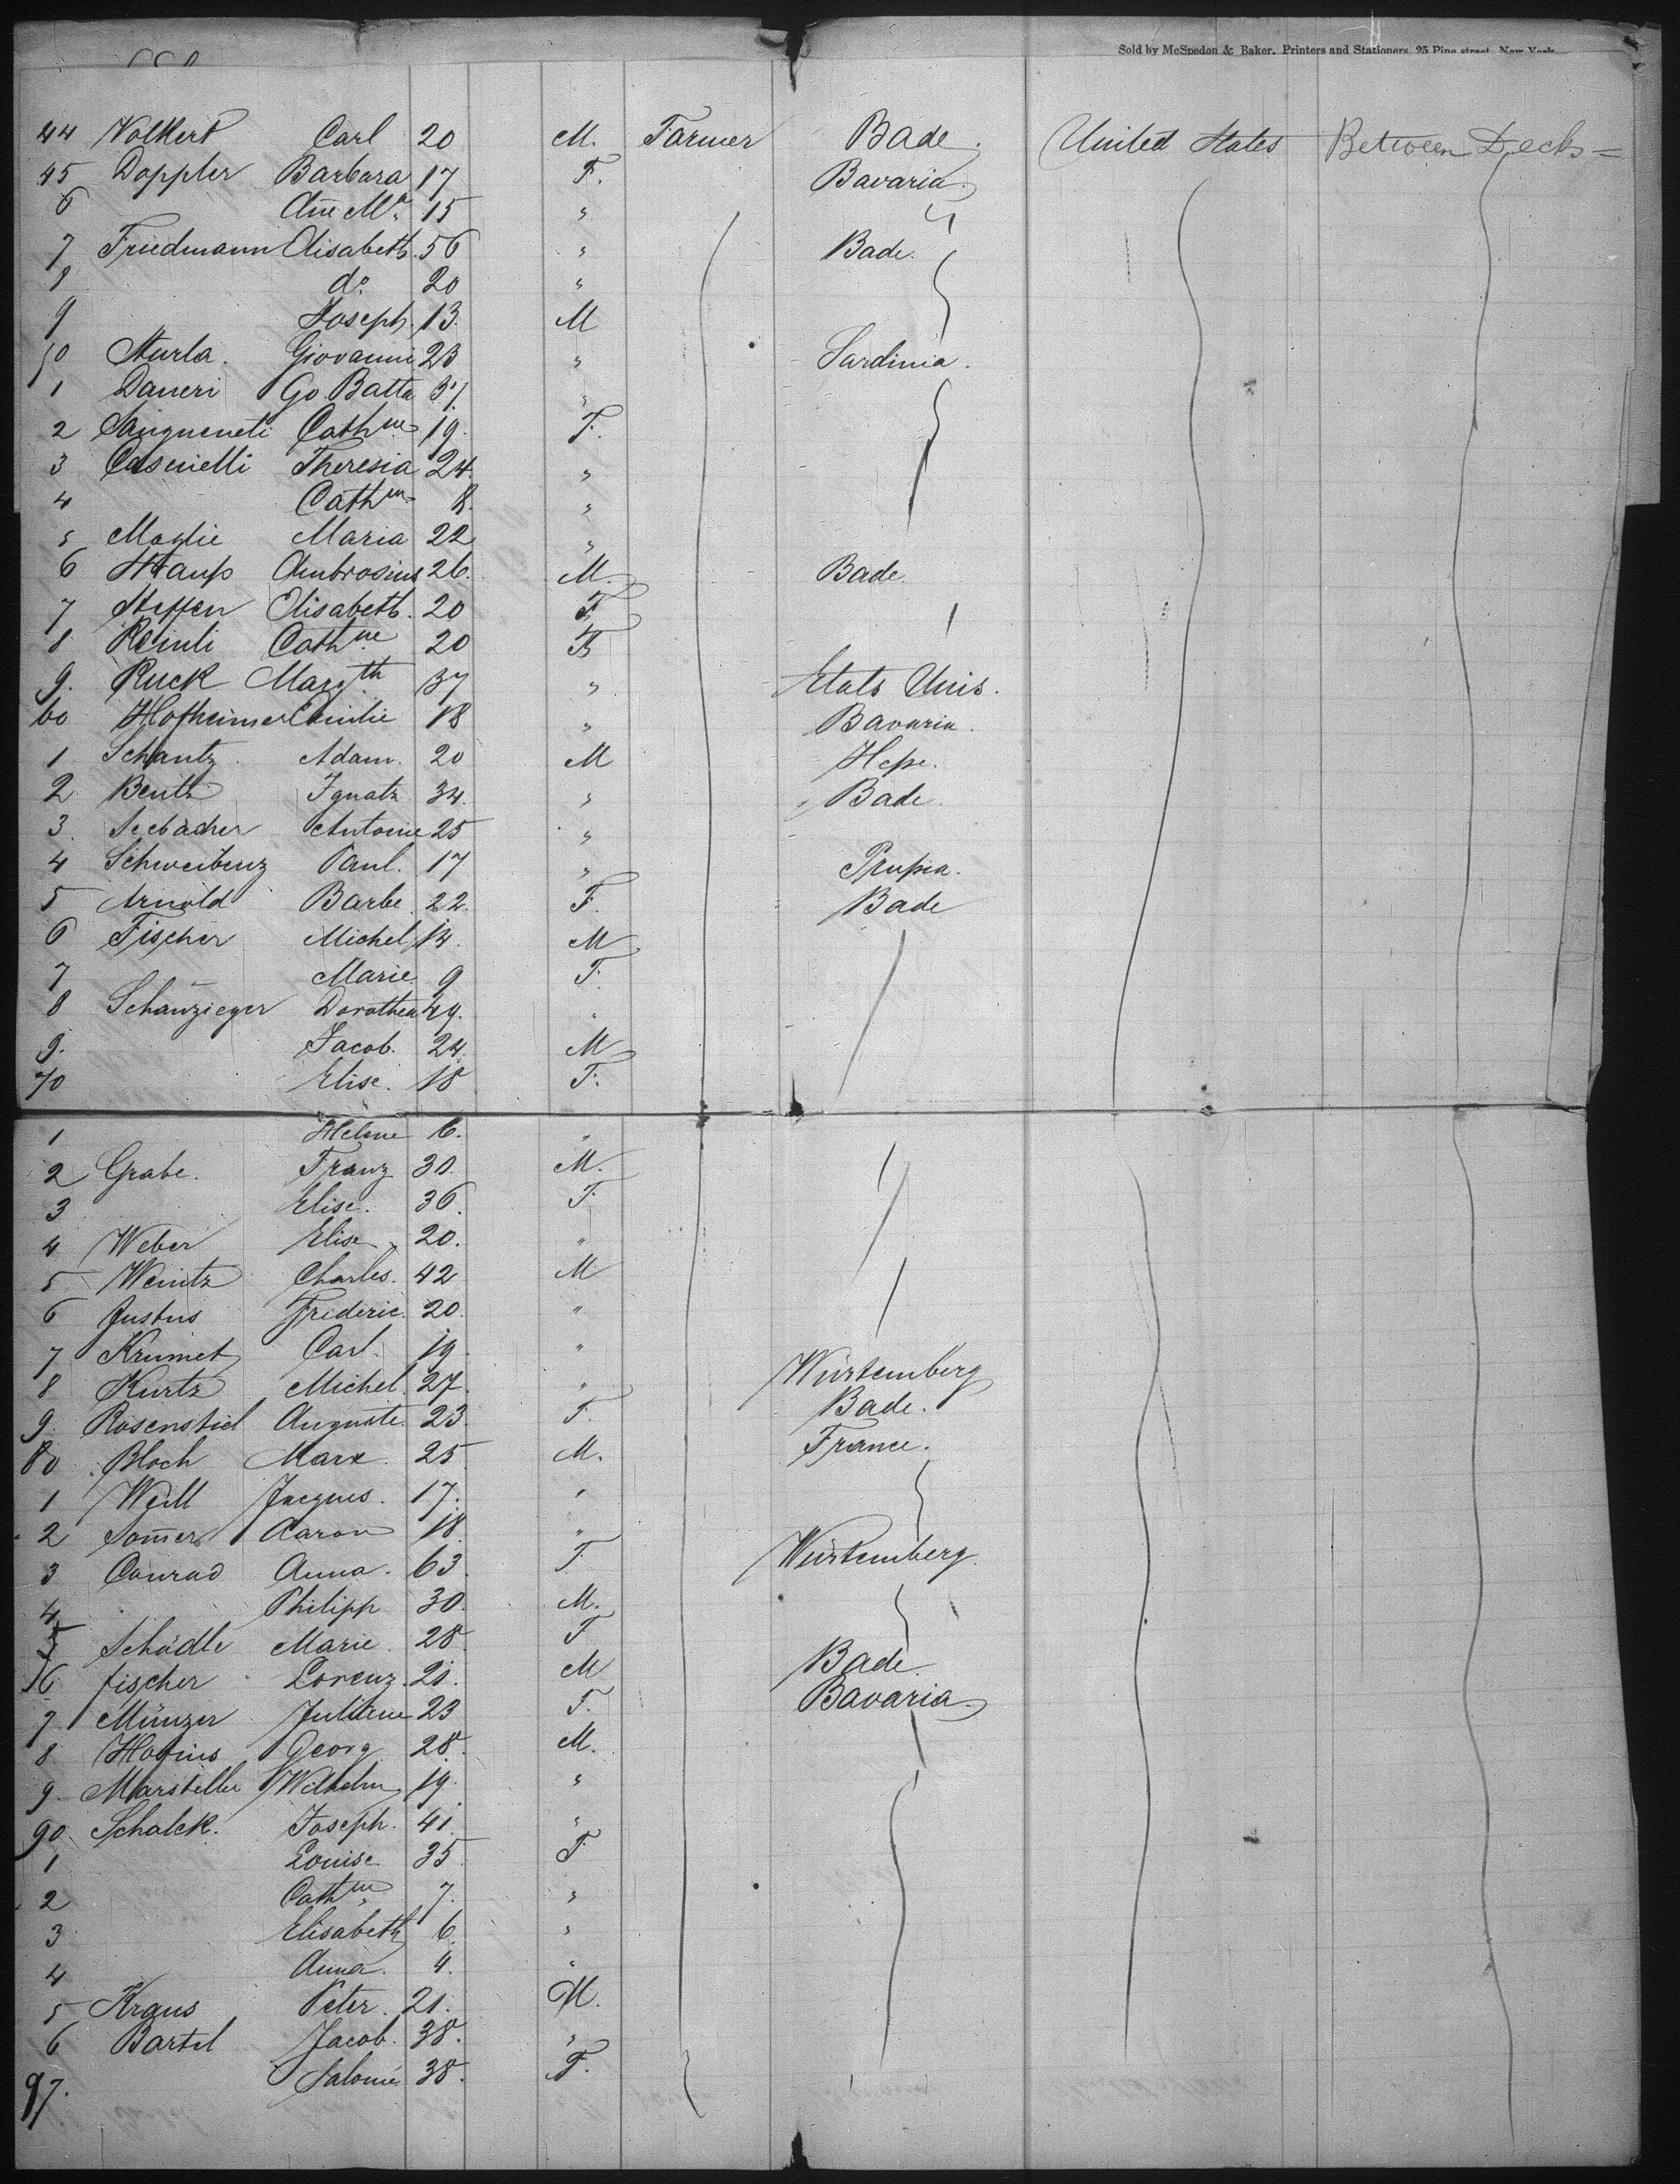 Sold by McSpedon & Baker, Printers and Stationers, 25 Pine street, New York
44 Volkert Carl 20 M. Farmer Bade. United States Between Decks =
45 Doppler Barbara 17 F. Bavaria.
6 Añe Ma. 15 "
7 Friedmann Elisabeth. 56 " Bade.
8 do. 20 "
9 Joseph. 13. M
50 Sturla. Giovanni 23 " Sardinia.
1 Daneri Go Batta 37. "
2 Cathne 19. F.
3 Casinelli Theresia 24. "
4 Cathne 8. "
5 Moglie Maria 22 "
6 Ambrosius 26. M. Bade.
7 Steffen Elisabeth. 20 F.
8 Reinli Cathne 20 F
9. Ruck Margth 37 " Etats Unis.
60 Hofheimer Emilie 18 " Bavaria.
1 Schantz. Adam. 20 M Hesse.
2 Bentz Ignatz 34. " Bade.
3. Seebacher Antoine 25 "
4 Schweibenz Paul. 17 " Prussia.
5 Arnold Barbe. 22. F. Bade
6 Fischer Michel 14. M
7 Marie. 9 F.
8 Schanzieger Dorothea 49. "
9. Jacob. 24. M
70 Elise. 18 F.
1 Helene 6. "
2 Grabe. Franz 30. M.
3 Elise. 36. F.
4 Weber Elise 20. "
5 Weintz Charles. 42 M
6 Justus Frederic. 20. "
7 Krumet Carl. 19. "
8 Kurtz Michel. 27. " Würtemberg
9. Rosenstiel Auguste. 23. F. Bade.
80 Bloch Marx 25. M. France.
1 Weill Jacques. 17. "
2 Som̃er Aaron 18. "
3 Conrad Anna. 63. F. Würtemberg.
4 Philipp 30. M.
5 Schädle Marie. 28. F
6 Fischer Lorenz. 21. M Bade.
7 Münzer Juliane 23 F. Bavaria.
8 Georg 28. M.
9. Marsteller Wilhelm 19. "
90. Schalck. Joseph. 41. "
1 Louise 35. F
2 Cathne 7. "
3 Elisabeth 6. "
4 Anna. 4. "
5 Kraus Peter. 21. M.
6 Bartel Jacob. 38. "
97. Salomé 38. F.